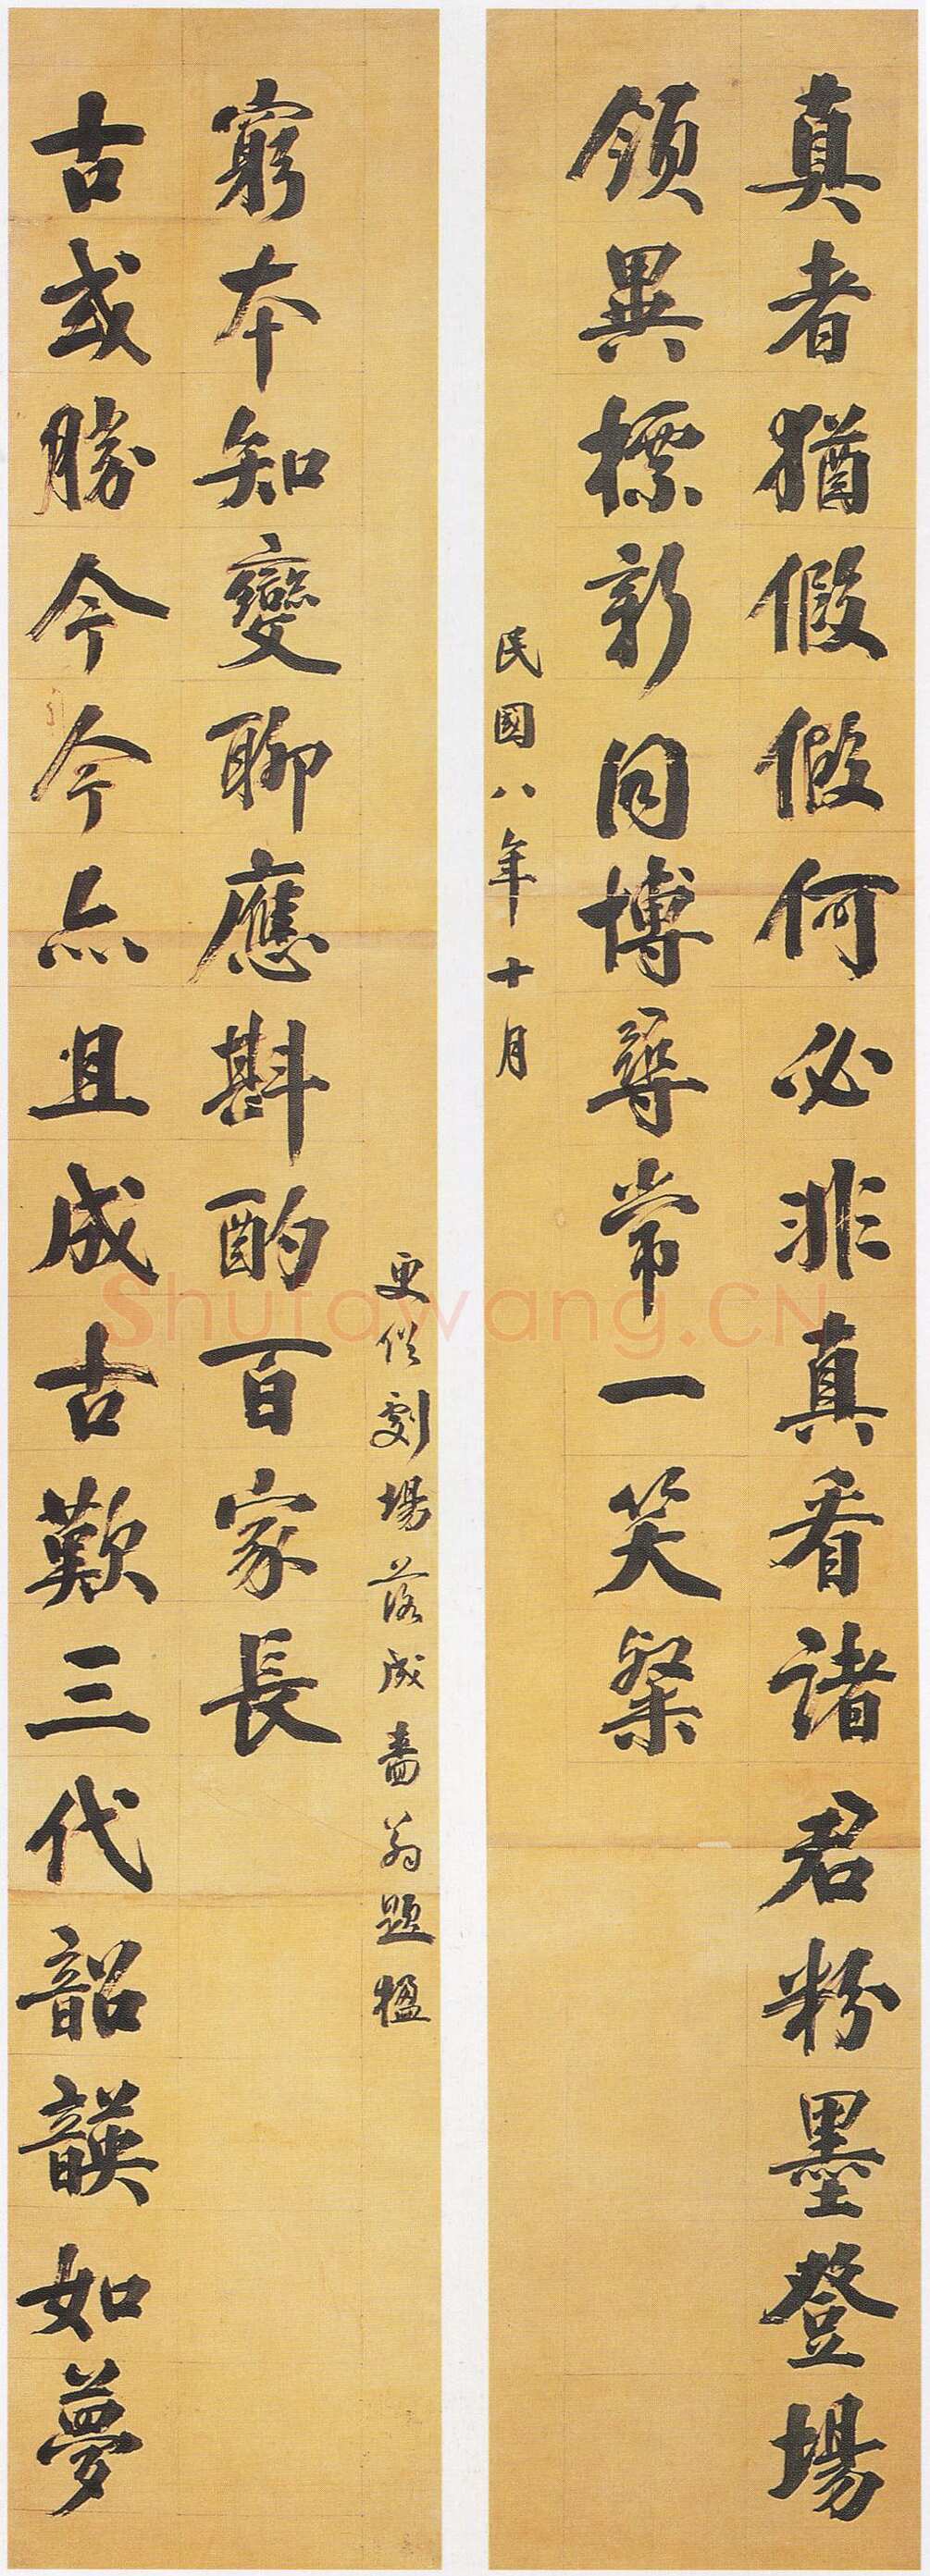 真者猶假假何必非真看諸君粉墨登場
領異標新同博尋常一笑粲
民國八年十月
古或勝今今亦且成古歎三代韶韺如夢
窮本知變聊應斟酌百家長
更俗劇場落成嗇翁題楹
Shufawang.CN